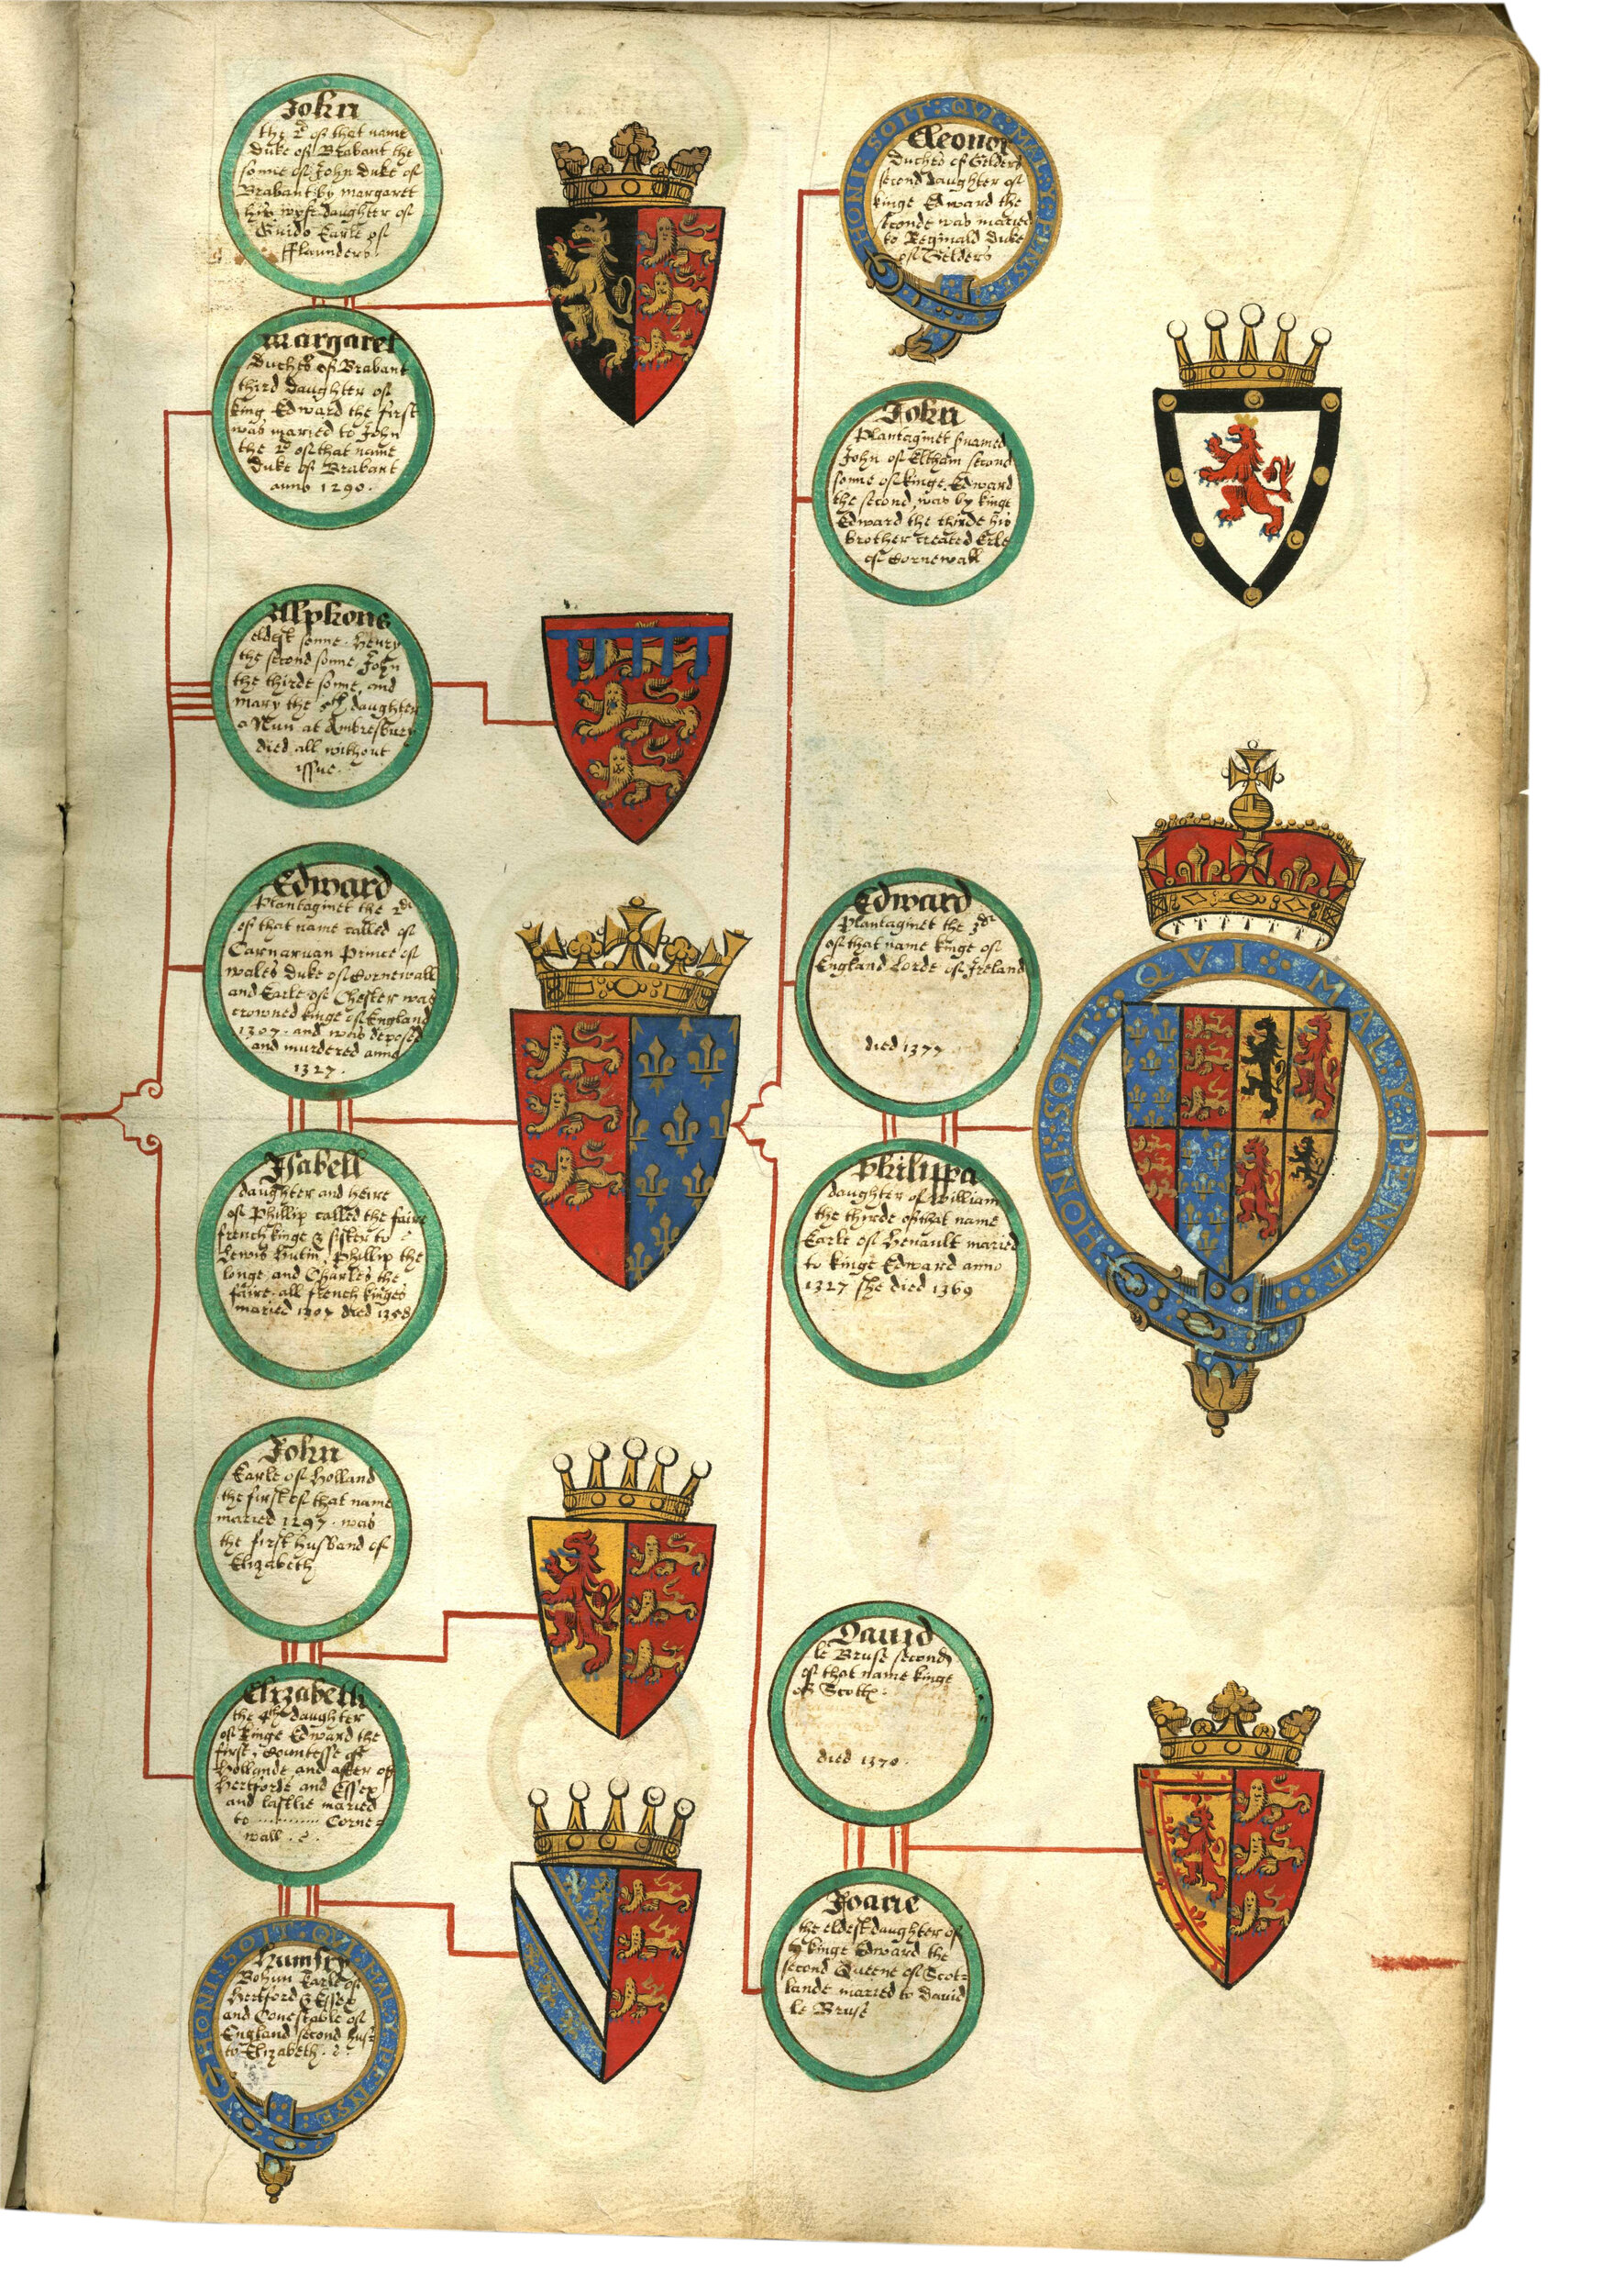 John
the 2d of that name
Duke of Brabant the
sonne of John Duke of
Brabant by margaret
his wyfe daughter of
Guido Earle of
Fflaunders.
Margaret
Duches of Brabant
third daughter of
king Edward the first
was maried to John
the 2d of that name
Duke of Brabant
anno 1290.
Alphons
eldest sonne. Henry
the second sonne, John
the thirde sonne, and
Mary the 5th daughter
a Nun at Ambresbury
died all without
issue.
Edward
Plantaginet the 2d
of that name called of
Carnaruan Prince of
wales Duke of Cornewall
and Earle of Chester was
crowned kinge of England
1307. and was deposed
and murdered anno
1327.
Isabell
daughter and heire
of Phillip called the faire
french kinge & sister to
Lewis Hutin, Phillip the
longe, and Charles the
faire, all french kinges
maried 1307 died 1358
John
Earle of Holland
the first of that name
maried 1297. was
the first husband of
Elizabeth
Elizabeth
the 4th daughter
of kinge Edward the
first, Countesse of
Hollande, and after of
Hertforde and Essex
and lastlie maried
to ............ Corne=
wall.
Humfry
Bohun Earle of
Hertford & Essex
and Conestable of
England second hus=
to Elizabeth.
HONI SOIT QVI MAL Y PENSE
HONI: SOIT: QVI: MAL: Y: PENS
Eleonor
Duches of Gelders
second daughter of
kinge Edward the
seconde was maried
to Reginald Duke
of Gelders
John
Plantaginet surnamed
John of Eltham second
sonne of kinge Edward
the second, was by kinge
Edward the thirde his
brother created Erle
of Cornewall
Edward
Plantaginet the 3d
of that name kinge of
England Lorde of Ireland
died 1377
Philippa
daughter of William
the thirde of that name
Earle of Henault maried
to kinge Edward anno
1327 she died 1369
HONI: SOIT: QVI: MAL: Y: PENSE
David
le Bruse second
of that name kinge
of Scotts.
died 1370.
Joane
the eldest daughter of
kinge Edward the
second Queene of Scot=
lande maried to David
le Bruse